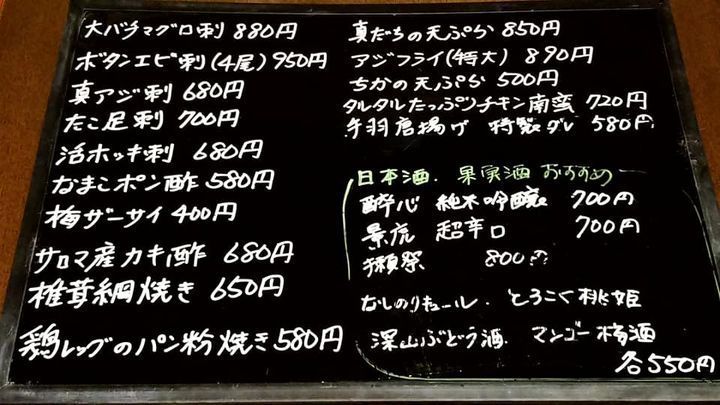 大バチマグロ刺 880円
ボタンエビ刺(4尾) 950円
真アジ刺 680円
たこ足刺 700円
活ホッキ刺 680円
なまこポン酢 580円
梅ザーサイ 400円
サロマ産カキ酢 680円
椎茸網焼き 650円
鶏レッグのパン粉焼き 580円
真だちの天ぷら 850円
アジフライ(特大) 890円
ちかの天ぷら 500円
タルタルたっぷりチキン南蛮 720円
手羽唐揚げ 特製ダレ 580円
日本酒. 果実酒 おすすめ
酔心 純米吟醸 700円
景虎 超辛口 700円
獺祭 800円
なしのリキュール. とろこく桃姫
深山ぶどう酒. マンゴー梅酒
各550円